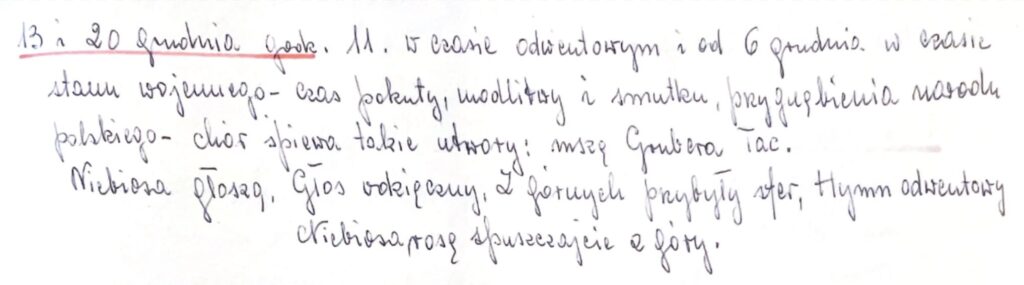 13 i 20 grudnia godz. 11. w czasie adwentowym i od 6 grudnia w czasie
stanu wojennego - czas pokuty, modlitwy i smutku, przygnębienia narodu
polskiego - chór śpiewa takie utwory: mszę Grubera łac.
Niebiosa głoszą, Głos wdzięczny, Z górnych przybyły sfer, Hymn adwentowy
Niebiosa, rosę spuszczajcie z góry.